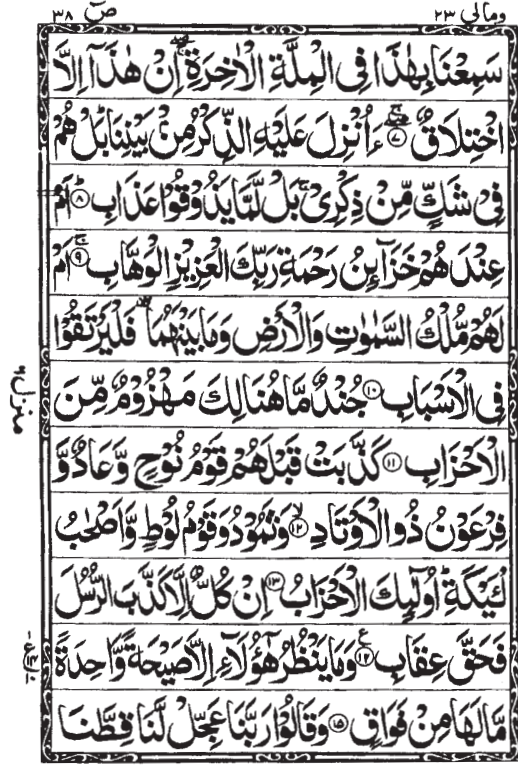 ومالي ٢٣ صٓ ٣٨
سَمِعْنَا بِهٰذَا فِى الْمِلَّةِ الْاٰخِرَةِ ۖۚ اِنْ هٰذَآ اِلَّا
اخْتِلَاقٌ ۖۚ ﴿٧﴾ ءَاُنْزِلَ عَلَيْهِ الذِّكْرُ مِنْۢ بَيْنِنَا ؕ بَلْ هُمْ
فِىْ شَكٍّ مِّنْ ذِكْرِىْ ۚ بَلْ لَّمَّا يَذُوْقُوْا عَذَابِ ؕ ﴿٨﴾ اَمْ
عِنْدَهُمْ خَزَآئِنُ رَحْمَةِ رَبِّكَ الْعَزِيْزِ الْوَهَّابِ ۚ ﴿٩﴾ اَمْ
لَهُمْ مُّلْكُ السَّمٰوٰتِ وَالْاَرْضِ وَمَا بَيْنَهُمَا ۫ فَلْيَرْتَقُوْا
فِى الْاَسْبَابِ ﴿١٠﴾ جُنْدٌ مَّا هُنَالِكَ مَهْزُوْمٌ مِّنَ
الْاَحْزَابِ ﴿١١﴾ كَذَّبَتْ قَبْلَهُمْ قَوْمُ نُوْحٍ وَّعَادٌ وَّ
فِرْعَوْنُ ذُو الْاَوْتَادِ ۙ ﴿١٢﴾ وَثَمُوْدُ وَقَوْمُ لُوْطٍ وَّاَصْحٰبُ
لْـَٔيْكَةِ ؕ اُولٰٓئِكَ الْاَحْزَابُ ﴿١٣﴾ اِنْ كُلٌّ اِلَّا كَذَّبَ الرُّسُلَ
فَحَقَّ عِقَابِ ﴿١٤﴾ ع وَمَا يَنْظُرُ هٰٓؤُلَآءِ اِلَّا صَيْحَةً وَّاحِدَةً
مَّا لَهَا مِنْ فَوَاقٍ ﴿١٥﴾ وَقَالُوْا رَبَّنَا عَجِّلْ لَّنَا قِطَّنَا
منزل ٦